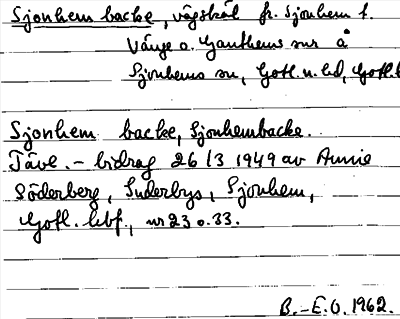 Sjonhem backe, vägskäl fr. Sjonhem t.
Vänge o. Ganthems snr å
Sjonhems sn, Gotl. n. hd, Gotl. l
Sjonhem backe, Sjonhembacke.
Täve. - bidrag 26/3 1949 av Annie
Söderberg, Suderbys, Sjonhem,
Gotl. hbf., nr 23 o. 33.
B.-E.O. 1962.